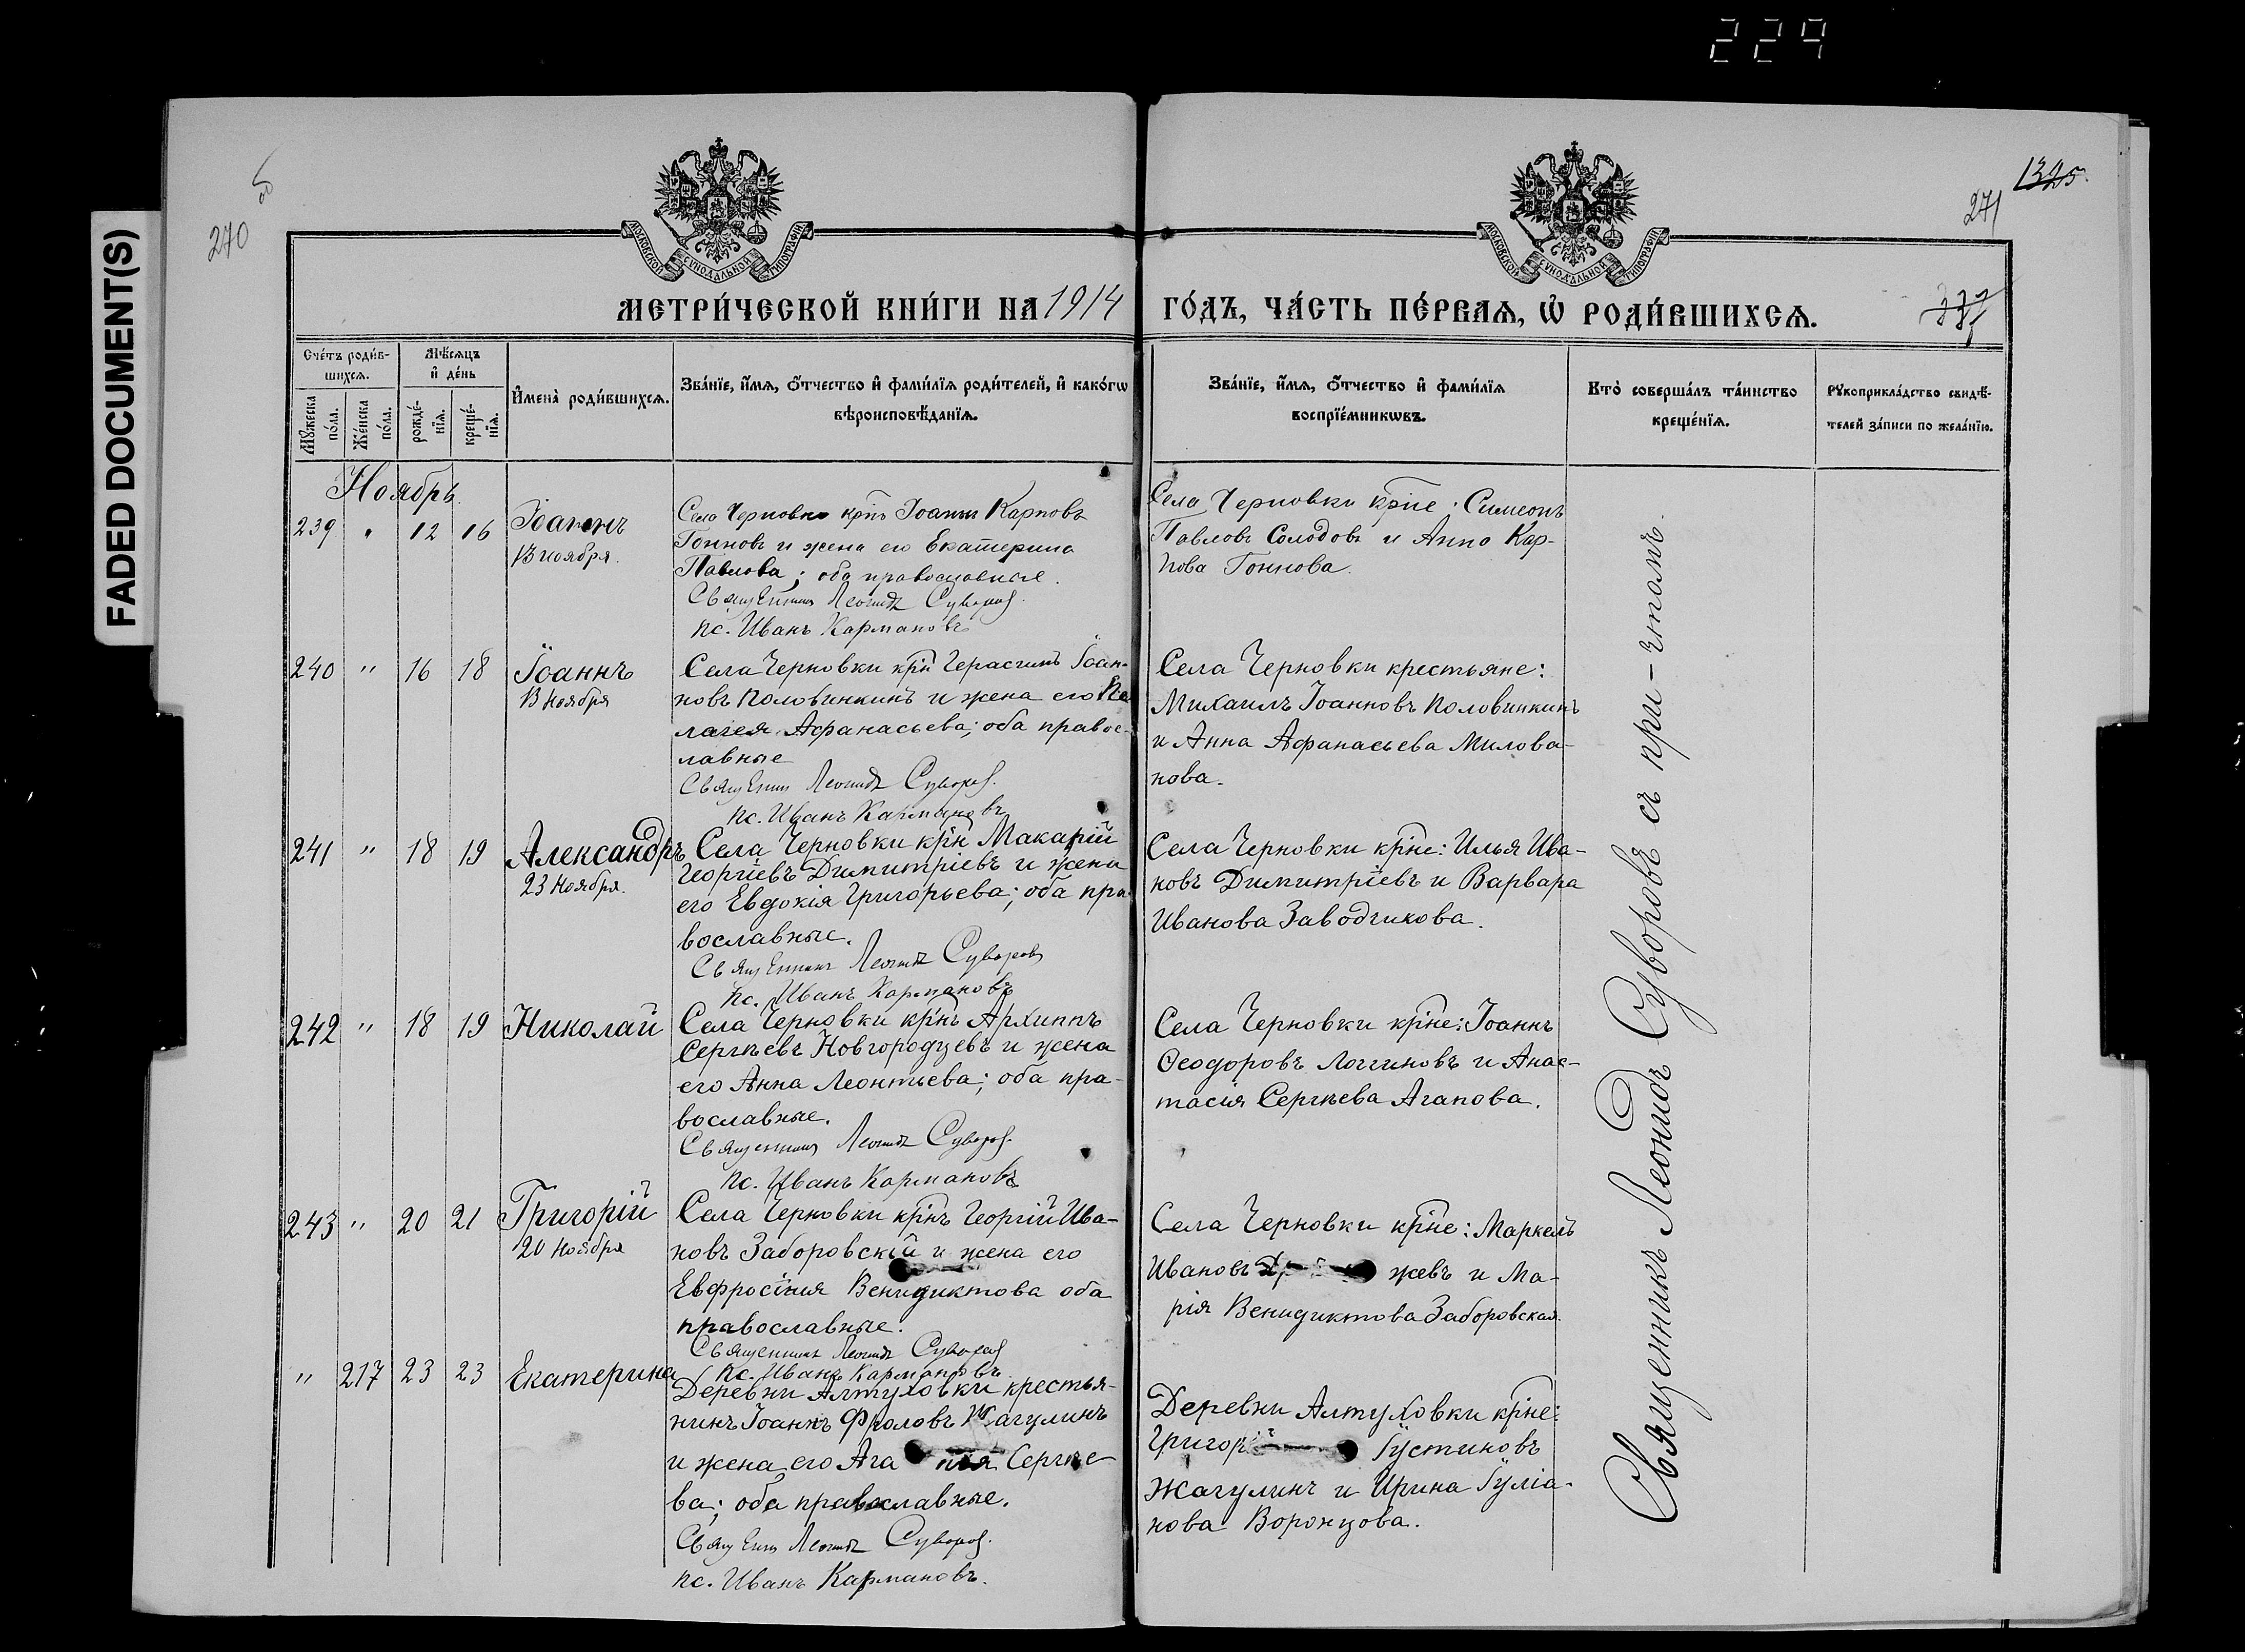 224
FADED DOCUMENT(S)
270 об
1325
271
МОСКОВСКОЙ СУНОДАЛЬНОЙ ТИПОГРАФІИ
МОСКОВСКОЙ СУНОДАЛЬНОЙ ТИПОГРАФІИ
МЕТРИ́ЧЕСКОЙ КНИ́ГИ НА 1914 ГО́ДЪ, ЧА́СТЬ ПЕ́РВАѦ, Ѡ҆ РОДИ́ВШИХСѦ.
Сче́тъ роди́в-
шихсѧ.
Мѣ́сѧцъ
и҆ де́нь
Мꙋ́жеска
по́ла.
Же́нска
по́ла.
рожде́-
нїѧ.
креще́-
нїѧ.
И҆мена̀ роди́вшихсѧ.
Зва́нїе, и҆́мѧ, ѻ҆́тчество и҆ фами́лїѧ роди́телей, и҆ како́гѡ
вѣроисповѣ́данїѧ.
Зва́нїе, и҆́мѧ, ѻ҆́тчество и҆ фами́лїѧ
воспрїе́мникѡвъ.
Кто̀ соверша́лъ та́инство
креще́нїѧ.
Рꙋкоприкла́дство свидѣ́-
телей за́писи по жела́нїю.
Ноябрь.
239 " 12 16 Іоаннъ
13 ноября.
Села Черновки кр̃нъ Іоаннъ Карповъ
Гонновъ и жена его Екатерина
Павлова; оба православные.
Священникъ Леонидъ Суворовъ.
пс. Иванъ Кармановъ
Села Черновки кр̃не: Симеонъ
Павловъ Солодовъ и Анна Кар-
пова Гоннова.
240 " 16 18 Іоаннъ
13 Ноября
Села Черновки кр̃н Герасимъ Іоан-
новъ Половинкинъ и жена его Пе
лагея Афанасьева; оба правос-
лавные
Священник Леонидъ Суворов.
пс. Иванъ Кармановъ
Села Черновки крестьяне:
Михаилъ Іоанновъ Половинкинъ
и Анна Афанасьева Милова-
нова.
241 " 18 19 Александръ
23 Ноября.
Села Черновки кр̃н Макарій
Георгіевъ Димитріевъ и жена
его Евдокія Григорьева; оба пра-
вославные.
Священникъ Леонидъ Суворовъ
пс. Иванъ Кармановъ
Села Черновки кр̃не: Илья Ива-
новъ Димитріевъ и Варвара
Иванова Заводчикова.
242 " 18 19 Николай
Села Черновки кр̃нъ Архиппъ
Сергѣевъ Новгородцевъ и жена
его Анна Леонтьева; оба пра-
вославные.
Священникъ Леонидъ Суворов.
пс. Иванъ Кармановъ
Села Черновки кр̃не: Іоаннъ
Ѳеодоровъ Логгиновъ и Анас-
тасія Сергѣева Агапова.
243 " 20 21 Григорій
20 Ноября
Села Черновки кр̃нъ Георгій Ива-
новъ Заборовскій и жена его
Евфросінія Венидиктова оба
православные.
Священникъ Леонидъ Суворов
пс. Иванъ Кармановъ
Села Черновки кр̃не: Маркелъ
Ивановъ жевъ и Ма-
рія Венидиктова Заборовская.
" 217 23 23 Екатерина
Деревни Алтуховки крестья-
нинъ Іоаннъ Фроловъ Жагулинъ
и жена его Ага пія Сергѣе-
ва; оба православные.
Священ Леонидъ Суворов.
пс. Иванъ Кармановъ.
Деревни Алтуховки кр̃не:
Григорій Іустиновъ
Жагулинъ и Ирина Іуліа-
нова Воронцова.
Священникъ Леонидъ Суворовъ съ при-чтомъ.